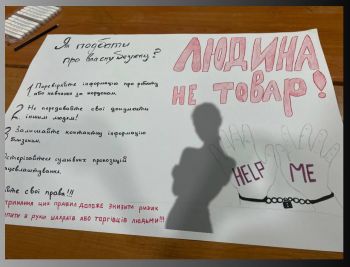 Як подбати
про власну безпеку?
1 Перевіряйте інформацію про роботу
або навчання за кордоном.
2 Не передавайте свої документи
іншим людям!
3 Залишайте контактну інформацію
близьким.
пропозицій
працевлаштування.
свої права!!!
цих правил допоможе знизити ризик
в руки шахраїв або торгівців людьми!!!
ЛЮДИНА
НЕ ТОВАР!
HELP ME